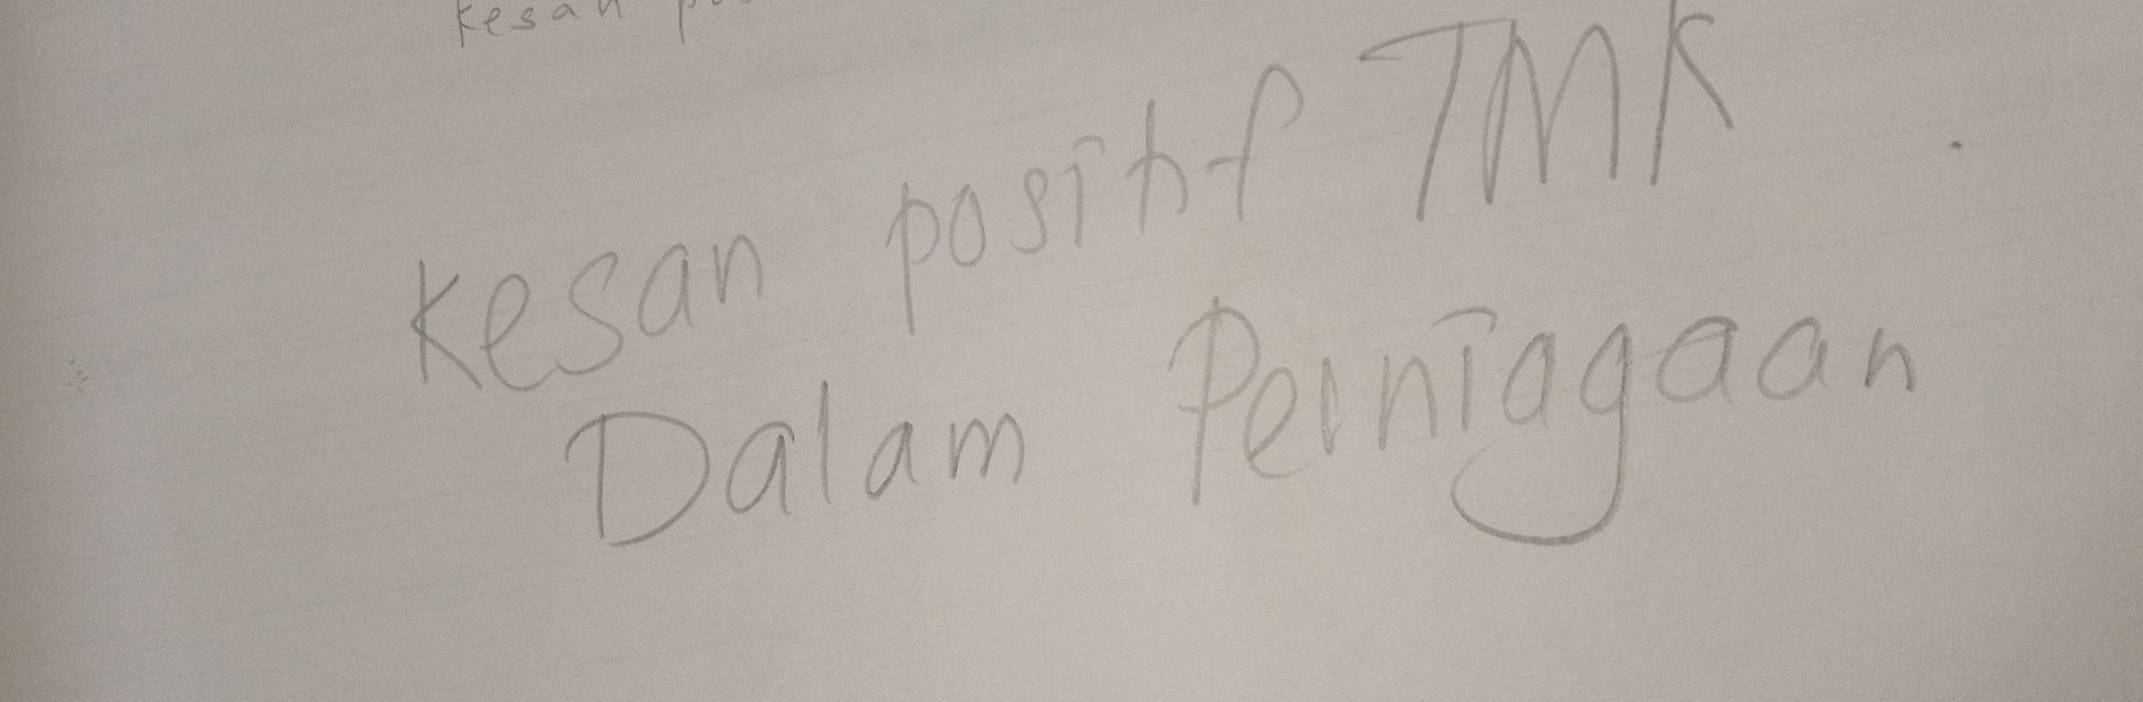 Kesan
Kesan positif TMK
Dalam Perniagaan